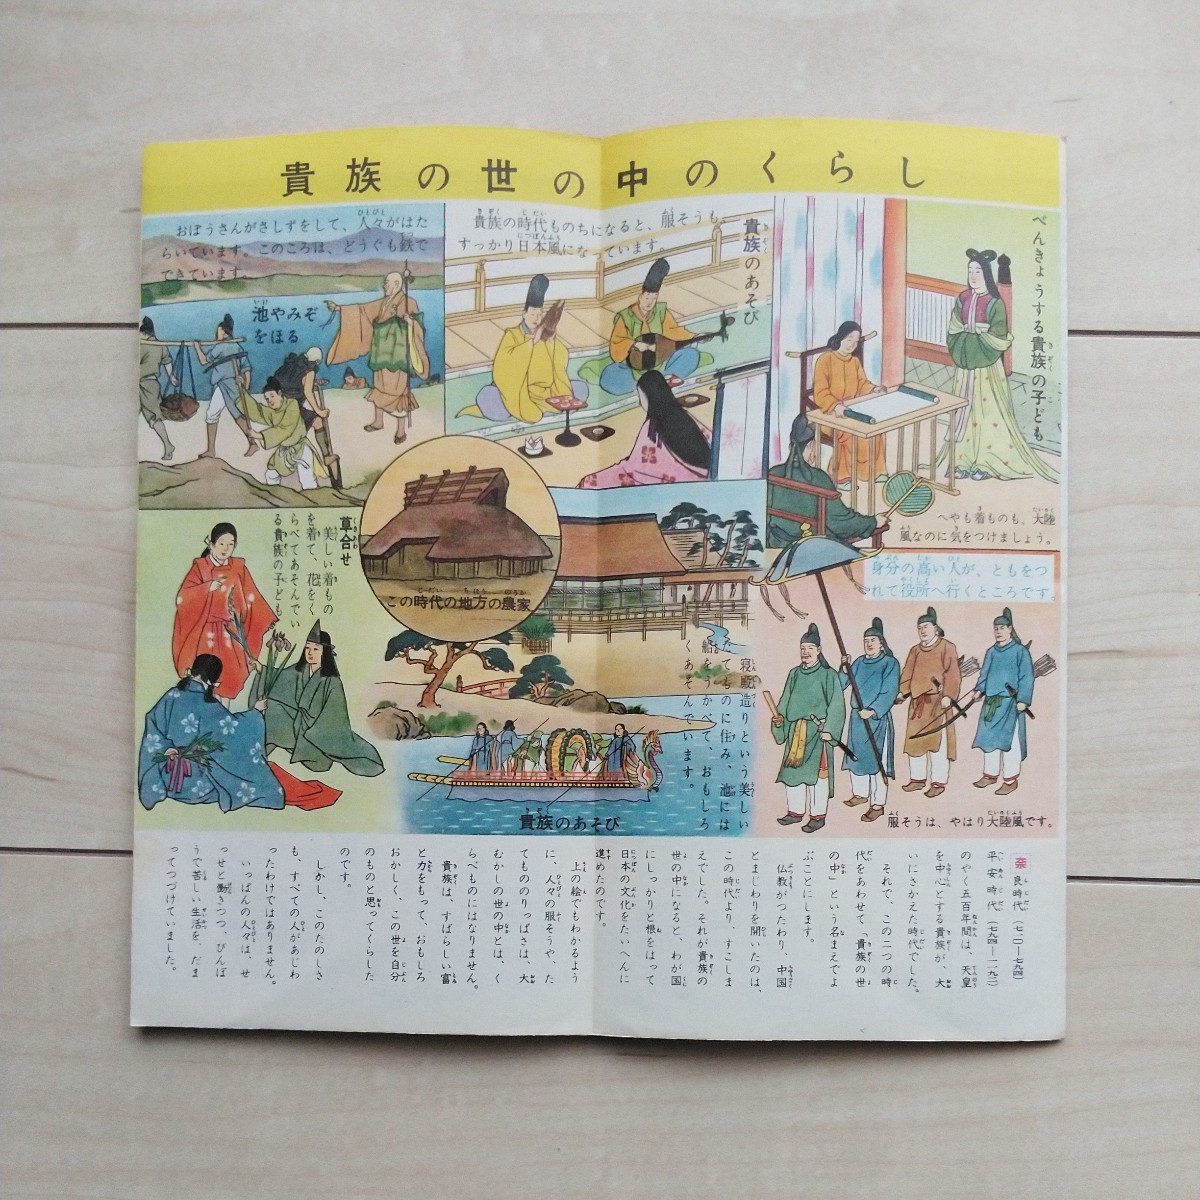 貴族の世の中のくらし
べんきょうする貴族の子ども
へやも着ものも、大陸
風なのに気をつけましょう。
貴族のあそび
貴族の時代ものちになると、服そうも、
すっかり日本風になっています。
おぼうさんがさしずをして、人々がはた
らいています。このころは、どうぐも鉄で
できています。
池やみぞ
をほる
身分の高い人が、ともをつ
れて役所へ行くところです
服そうは、やはり大陸風です。
この時代の地方の農家
寝殿造りという美しい
たてものに住み、池には
船をうかべて、おもしろ
くあそんでいます。
貴族のあそび
草合せ
美しい着もの
を着て、花をく
らべてあそんでい
る貴族の子ども
奈良時代(七一〇—七九四)
平安時代(七九四—一一九二)
のやく五百年間は、天皇
を中心とする貴族が、大
いにさかえた時代でした。
それで、この二つの時
代をあわせて「貴族の世
の中」という名まえでよ
ぶことにします。
仏教がつたわり、中国
とまじわりを開いたのは、
この時代より、すこしま
えでした。それが貴族の
世の中になると、わが国
にしっかりと根をはって
日本の文化をたいへんに
進めたのです。
上の絵でもわかるよう
に、人々の服そうや、た
てもののりっぱさは、大
むかしの世の中とは、く
らべものにはなりません。
貴族は、すばらしい富
と力をもって、おもしろ
おかしく、この世を自分
のものと思ってくらした
のです。
しかし、このたのしさ
も、すべての人があじわ
ったわけではありません。
いっぱんの人々は、せ
っせと働きつつ、びんぼ
うで苦しい生活を、だま
ってつづけていました。